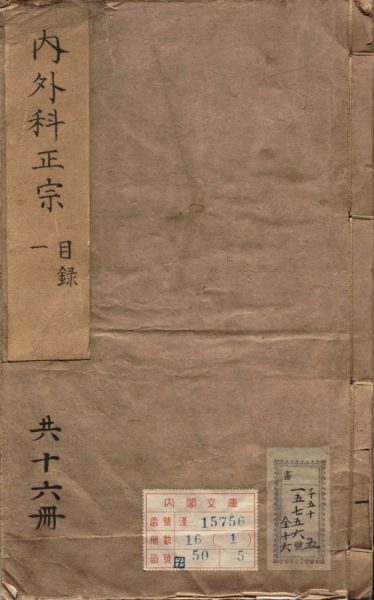 内外科正宗
目録
一
共十六冊
内閣文庫
番號 漢 15756
冊數 16 (1)
函號 50 5
書
子五十
一五七五六號
全十六
五
一